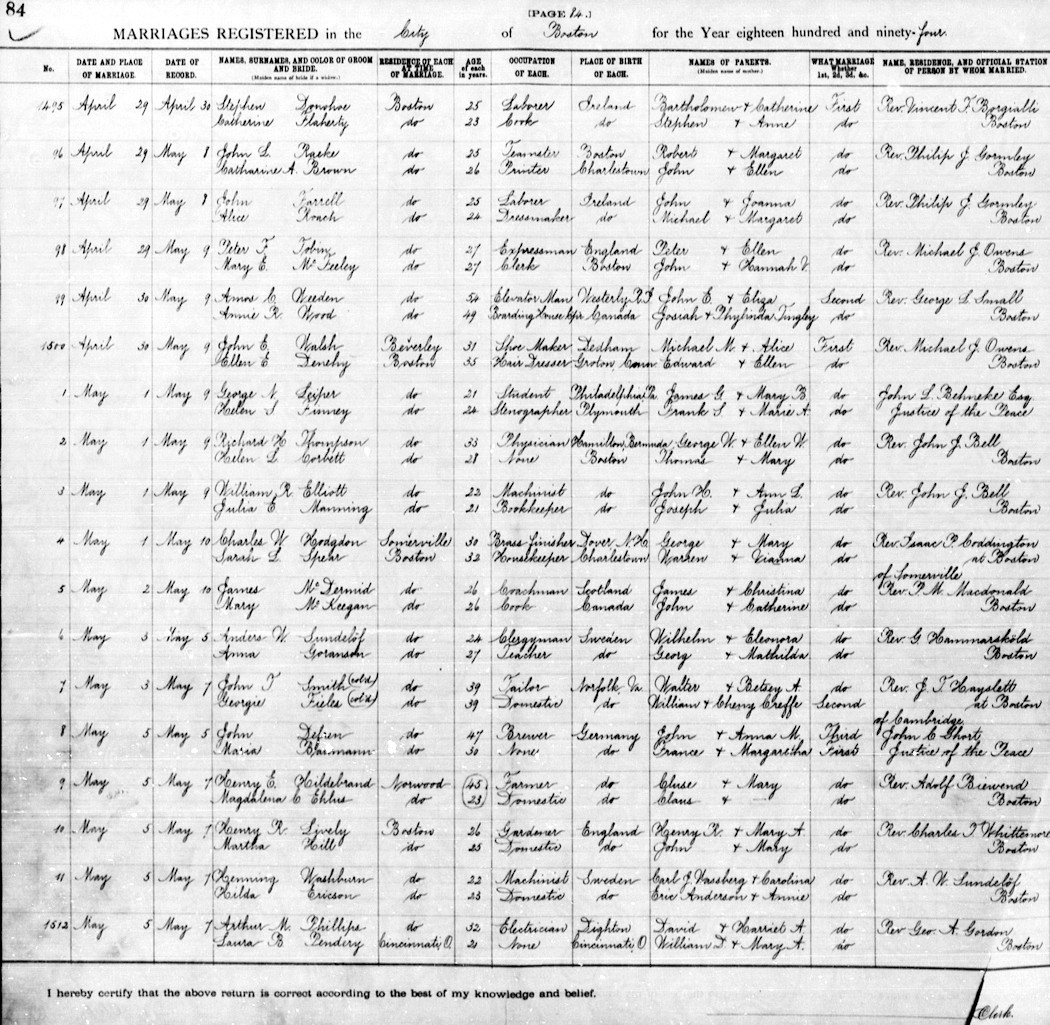 84
[PAGE 84.]
MARRIAGES REGISTERED in the City of Boston for the Year eighteen hundred and ninety-four.
No. DATE AND PLACE OF MARRIAGE. DATE OF RECORD. NAMES, SURNAMES, AND COLOR OF GROOM AND BRIDE. (Maiden name of bride if a widow.) RESIDENCE OF EACH AT TIME OF MARRIAGE. AGE of each in years. OCCUPATION OF EACH. PLACE OF BIRTH OF EACH. NAMES OF PARENTS. (Maiden name of mother.) WHAT MARRIAGE Whether 1st, 2d, 3d, &c. NAME, RESIDENCE, AND OFFICIAL STATION OF PERSON BY WHOM MARRIED.
1495 April 29 April 30 Stephen Donohoe Boston 25 Laborer Ireland Bartholomew & Catherine First Rev. Vincent F. Borgialli
Catherine Flaherty do 23 Cook do Stephen & Anne do Boston
96 April 29 May 8 John L. Roeke do 25 Teamster Boston Robert & Margaret do Rev. Philip J. Gormley
Catharine A. Brown do 26 Printer Charlestown John & Ellen do Boston
97 April 29 May 8 John Farrell do 25 Laborer Ireland John & Joanna do Rev. Philip J. Gormley
Alice Roach do 24 Dressmaker do Michael & Margaret do Boston
98 April 29 May 9 Peter F. Tobin do 27 Expressman England Peter & Ellen do Rev. Michael J. Owens
Mary E. McFeeley do 27 Clerk Boston John & Hannah V. do Boston
99 April 30 May 9 Amos C. Weeden do 54 Elevator Man Westerly R.I. John E. & Eliza Second Rev. George L. Small
Annie R. Wood do 49 Boarding House Kpr Canada Josiah & Phylinda Tingley do Boston
1500 April 30 May 9 John E. Walsh Beverley 31 Shoe Maker Dedham Michael M. & Alice First Rev. Michael J. Owens
Ellen E. Denehy Boston 35 Hair Dresser Groton Conn Edward & Ellen do Boston
1 May 1 May 9 George N. Leiper do 21 Student Philadelphia Pa James G. & Mary B. do John L. Behneke Esq
Helen S Finney do 24 Stenographer Plymouth Frank S. & Marie A. do Justice of the Peace
2 May 1 May 9 Richard H. Thompson do 33 Physician Hamilton, Bermuda George W. & Ellen W. do Rev. John J. Bell
Helen L. Corbett do 28 None Boston Thomas & Mary do Boston
3 May 1 May 9 William R. Elliott do 22 Machinist do John H. & Ann L. do Rev. John J. Bell
Julia E. Manning do 21 Bookkeeper do Joseph & Julia do Boston
4 May 1 May 10 Charles W. Hodgdon Somerville 30 Brass Finisher Dover N.H. George & Mary do Rev. Isaac P. Coddington
Sarah L. Spear Boston 32 Housekeeper Charlestown Warren & Vianna do at Boston
of Somerville
5 May 2 May 10 James McDermid do 26 Coachman Scotland James & Christina do Rev. P. M. Macdonald
Mary McKeegan do 26 Cook Canada John & Catherine do Boston
6 May 3 May 5 Anders W. Sundelöf do 24 Clergyman Sweden Wilhelm & Eleonora do Rev. G. Hammarsköld
Anna Goranson do 27 Teacher do Georg & Mathilda do Boston
7 May 3 May 7 John T. Smith (col'd) do 39 Tailor Norfolk Va. Walter & Betsey A. do Rev. J. T. Hayslett
Georgie Fieles (col'd) do 39 Domestic do William & Cherry Creffe Second at Boston
of Cambridge
8 May 5 May 5 John Defren do 47 Brewer Germany John & Anna M. Third John C. Short
Maria Blaumann do 30 None do France & Margaretha First Justice of the Peace
9 May 5 May 7 Henry E. Hildebrand Norwood 45 Farmer do Cluse & Mary do Rev. Adolf Biewend
Magdalena C Ehlus do 23 Domestic do Claus & — do Boston
10 May 5 May 7 Henry R. Lively Boston 26 Gardener England Henry R. & Mary A. do Rev. Charles T. Whittemore
Martha Hill do 25 Domestic do John & Mary do Boston
11 May 5 May 7 Henning Washburn do 22 Machinist Sweden Carl J. Wassberg & Carolina do Rev. A. W. Sundelöf
Hilda Ericson do 23 Domestic do Eric Anderson & Annie do Boston
1512 May 5 May 7 Arthur M. Phillips do 32 Electrician Dighton David & Harriet A. do Rev. Geo. A. Gordon
Laura B Pendery Cincinnati, O. 21 None Cincinnati, O William D. & Mary A. do Boston
I hereby certify that the above return is correct according to the best of my knowledge and belief.
Clerk.